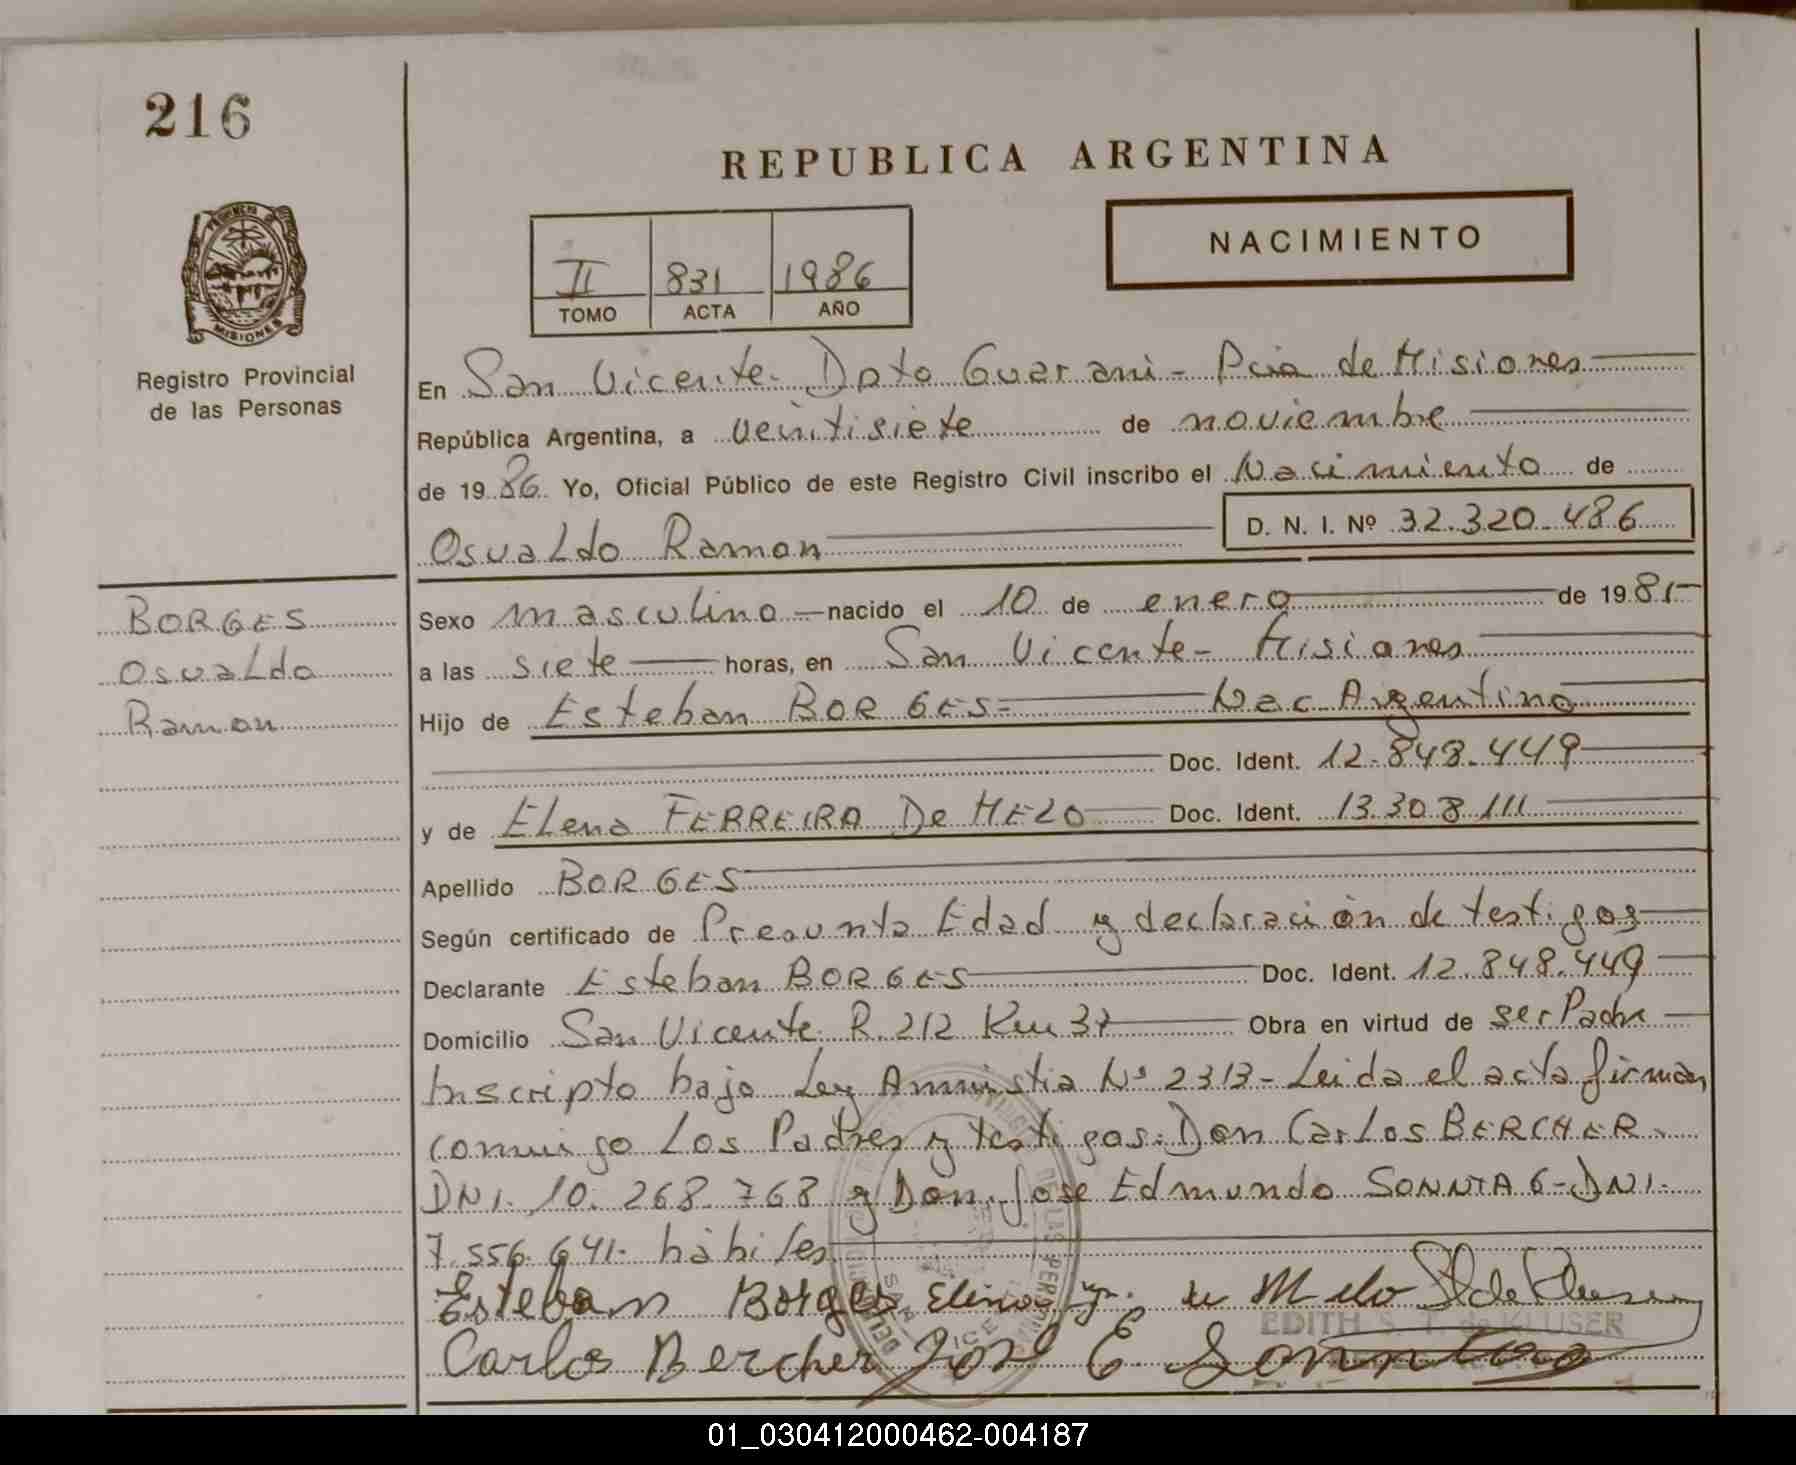 216
REPUBLICA ARGENTINA
NACIMIENTO
II 831 1986
TOMO ACTA AÑO
PROVINCIA DE
MISIONES
Registro Provincial
de las Personas
En San Vicente. Dpto Guarani - Pcia de Misiones
República Argentina, a veintisiete de noviembre
de 1986 Yo, Oficial Público de este Registro Civil inscribo el Nacimiento de
Osvaldo Ramon D. N. I. Nº 32.320.486
BORGES
Osvaldo
Ramon
Sexo masculino nacido el 10 de enero de 1981
a las siete horas, en San Vicente - Misiones
Hijo de Esteban BORGES - Nac Argentino
Doc. Ident. 12.848.449
y de Elena FERREIRA De MELO Doc. Ident. 13.308.111
Apellido BORGES
Según certificado de Presunta Edad y declaración de testigos
Declarante Esteban BORGES Doc. Ident. 12.848.449
Domicilio San Vicente R. 212 Km 37 Obra en virtud de ser Padre
Inscripto bajo Ley Amnistia Nº 2313 - Leida el acta firman
conmigo Los Padres y testigos: Don Carlos BERCHER.
DNI. 10.268.768 y Don Jose Edmundo SONNTAG - DNI.
7.556.641. hábiles
Esteban Borges de Melo
EDITH S. T. de KLUSER
Carlos Bercher José E. Sonntag
01_030412000462-004187